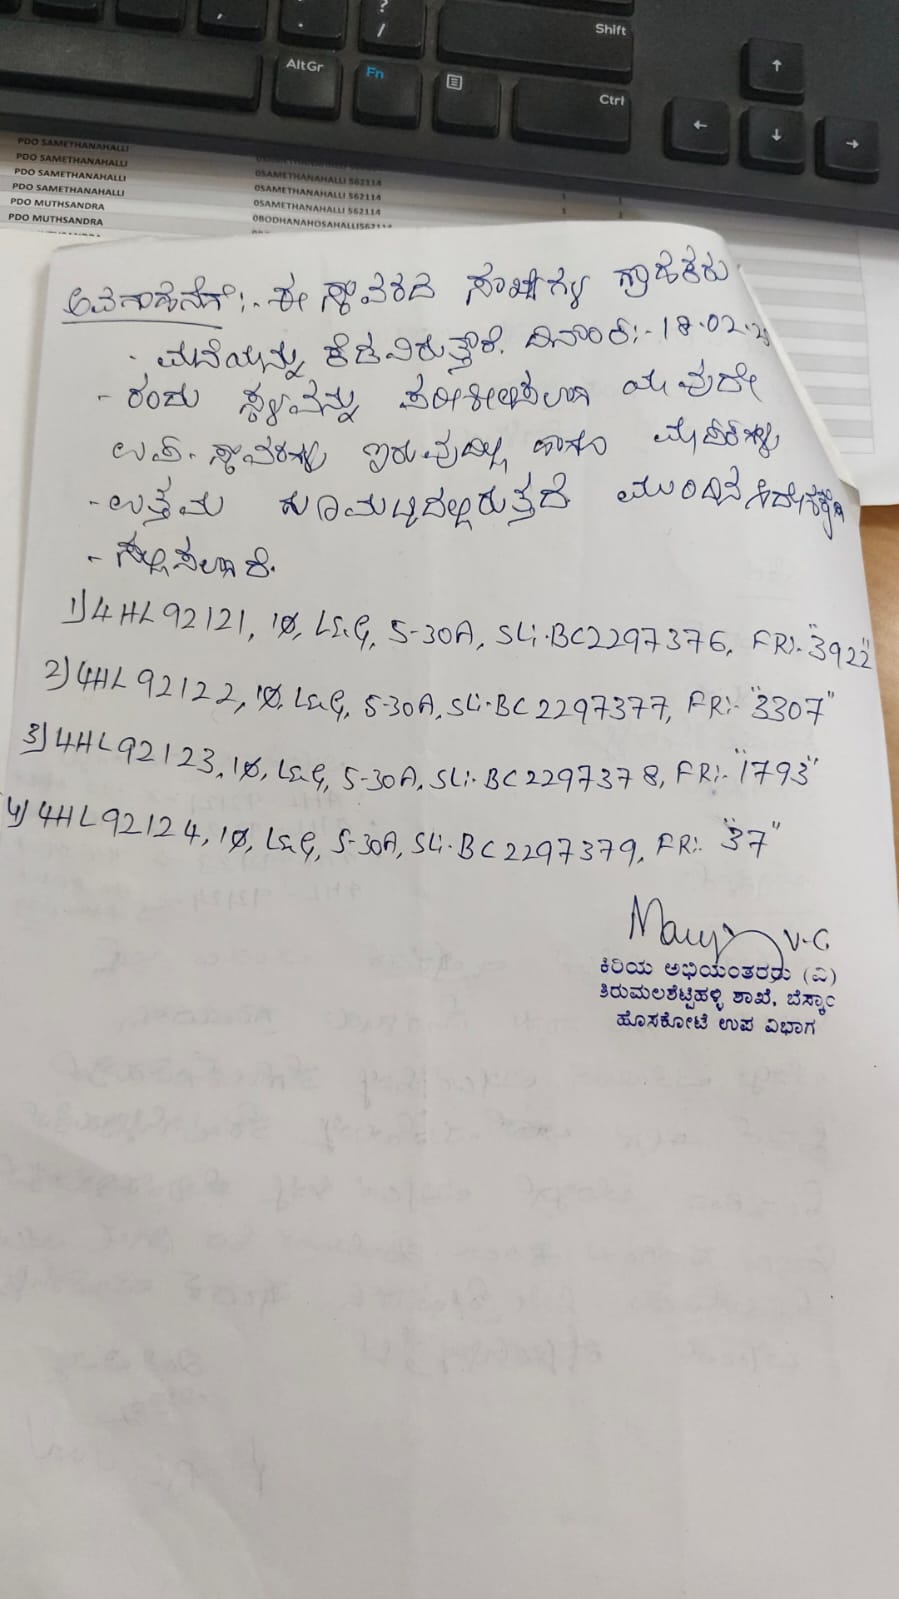 Shift
?
/
AltGr
Fn
Ctrl
↑
←
↓
→
PDO SAMETHANAHALLI
PDO SAMETHANAHALLI
PDO SAMETHANAHALLI 0SAMETHANAHALLI 562114
PDO SAMETHANAHALLI 0SAMETHANAHALLI 562114
PDO MUTHSANDRA 0SAMETHANAHALLI 562114
PDO MUTHSANDRA 0BODHANAHOSAHALLI562114
ಅವಗಾಹನೆಗೆ:- ಈ ಸ್ಥಾವರದ ಸಂಖ್ಯೆಗಳ ಗ್ರಾಹಕರು
- ಮನೆಯನ್ನು ಕೆಡವಿರುತ್ತಾರೆ. ದಿನಾಂಕ:- 18.02.25
- ರಂದು ಸ್ಥಳವನ್ನು ಪರಿಶೀಲಿಸಲಾಗಿ ಯಾವುದೇ
ಉಪ-ಸ್ಥಾವರಗಳು ಇರುವುದಿಲ್ಲ ಹಾಗೂ ಮಾಪಕಗಳು
- ಉತ್ತಮ ಮುಂದಿನ
- ಸಲ್ಲಿಸಲಾಗಿದೆ.
1) 4HL92121, 1Ø, L&G, 5-30A, SL:-BC2297376, FR:- "3922"
2) 4HL92122, 1Ø, L&G, 5-30A, SL:-BC2297377, FR:- "3307"
3) 4HL92123, 1Ø, L&G, 5-30A, SL:-BC2297378, FR:- "1793"
4) 4HL92124, 1Ø, L&G, 5-30A, SL:-BC2297379, FR:- "37"
V.G
ಕಿರಿಯ ಅಭಿಯಂತರರು (ವಿ)
ತಿರುಮಲಶೆಟ್ಟಿಹಳ್ಳಿ ಶಾಖೆ, ಬೆಸ್ಕಾಂ
ಹೊಸಕೋಟೆ ಉಪ ವಿಭಾಗ